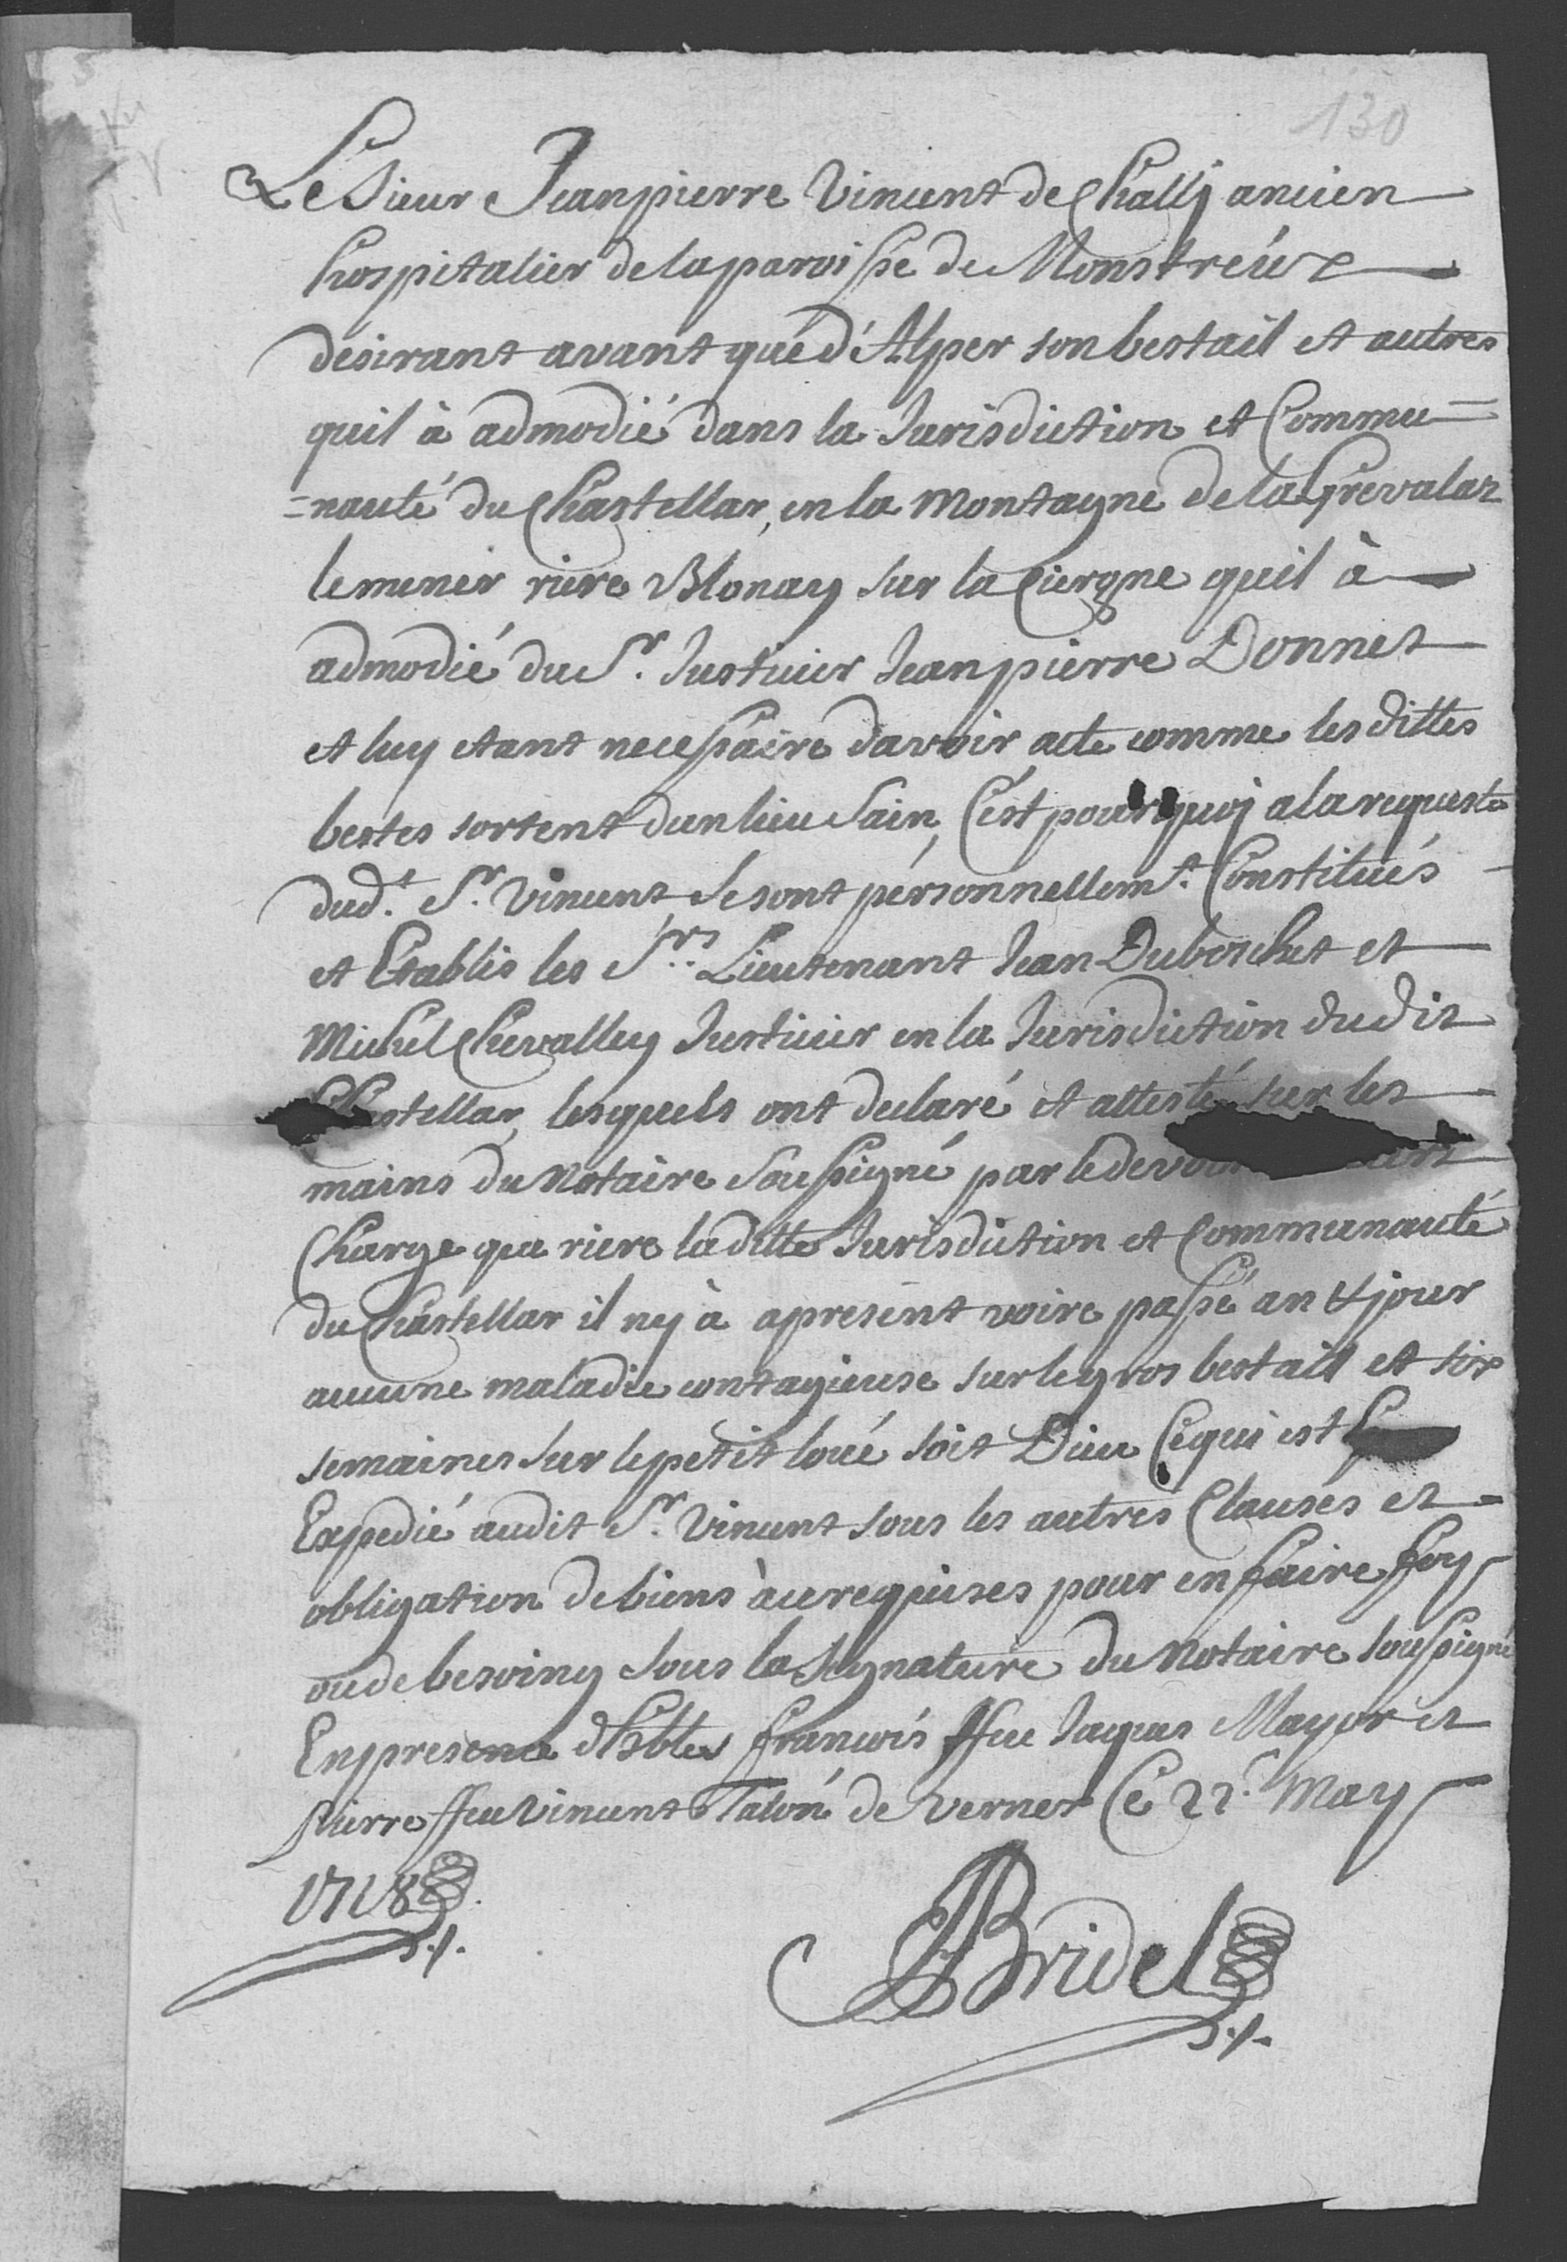 130
Le Sieur Jeanpierre Vincent de Chally ancien
hospitalier de la paroisse de Monstreúx
désirant avant que d'Alper son bestail et autres
quil à admodié dans la Jurisdiction et Commu=
=nauté du Chastellar, en la Montagne de la
le mener riere Blonay sur la Ciergne quil à
admodié du Sr. Justicier Jeanpierre Donnet
et luy etant necessaire davoir acte comme lesdittes
bestes sortent dun lieu sain, C'est pourquoj a la requeste
dud.t Sr. Vincent se sont pérsonnellem.t Constitués
et Etablis les Srs. Lieutenant Jean Duboschet et
Michel Chevalley Justicier en la Jurisdiction dudit
Chastellar, lesquels ont declaré et attesté sur les
mains du Notaire soussigné par le devoir
Charge que riere laditte Jurisdiction et Communauté
du Chastellar il ny à apresent voire passé an & jour
aucune maladie contagieuse sur le gros bestail et six
semaines sur le petit loué soit Dieu Ce qui est
Expedié audit Sr. Vincent sous les autres Clauses et
obligation de biens à ce requises pour en faire foy
ou de besoing sous la signature du Notaire soussigné
En presence d'hbles francois ffeu Jaques Mayor et
Pierre ffeu Vincent Talon de Vernex Ce 22e. May
1718
Bridel